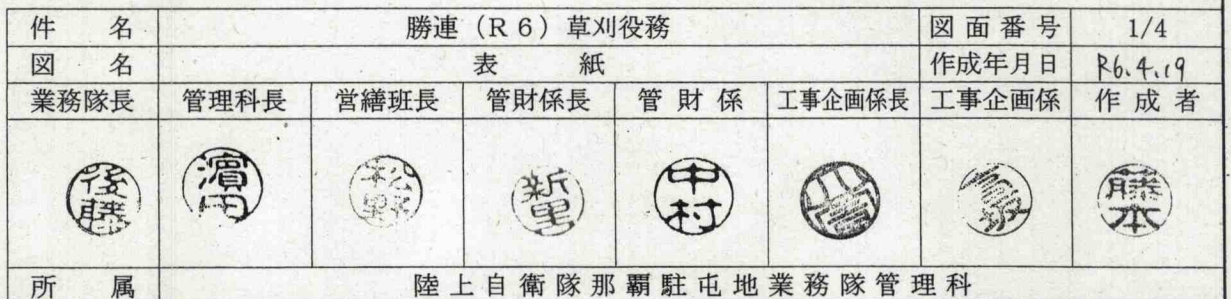 件名 勝連（R6）草刈役務 図面番号 1/4
図名 表紙 作成年月日 R6.4.19
業務隊長 管理科長 営繕班長 管財係長 管財係 工事企画係長 工事企画係 作成者
後藤 濱田 松野 新里 中村 藤本
所属 陸上自衛隊那覇駐屯地業務隊管理科